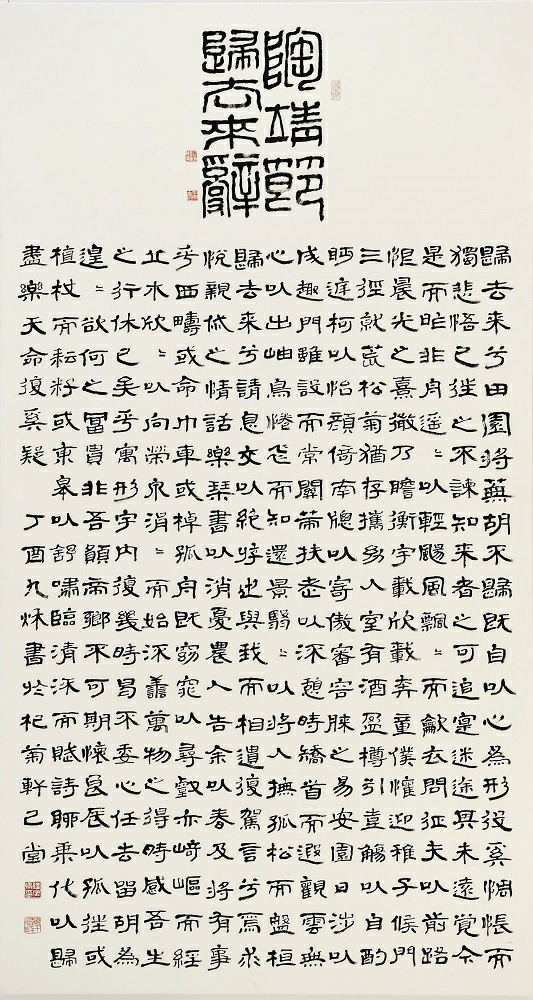 陶靖節
歸去來辭
歸去來兮田園將蕪胡不歸既自以心為形役奚惆悵而
獨悲悟已往之不諫知來者之可追寔迷途其未遠覺今
是而昨非舟遙〻以輕颺風飄〻而龡衣問征夫以前路
恨晨光之熹微乃瞻衡宇載欣載奔童僕懽迎稚子候門
三徑就荒松菊猶存攜幼入室有酒盈樽引壺觴以自酌
眄庭柯以怡顏倚南牕以寄傲審容膝之易安園日涉以
成趣門雖設而常關策扶老以流憩時矯首而遐觀雲無
心以出岫鳥倦飛而知還景翳〻以將入撫孤松而盤桓
歸去來兮請息交以絕游世與我而相遺復駕言兮焉求
悅親戚之情話樂琴書以消憂農人告余以春及將有事
乎西疇或命巾車或棹孤舟既窈窕以尋壑亦崎嶇而經
丘木欣〻以向榮泉涓〻而始流羨萬物之得時感吾生
之行休已矣乎寓形宇內復幾時曷不委心任去留胡為
遑〻欲何之富貴非吾願帝鄉不可期懷良辰以孤往或
植杖而耘耔或東皋以舒嘯臨清流而賦詩聊乘化以歸
盡樂天命復奚疑 丁酉九秋書於杞菊軒己堂